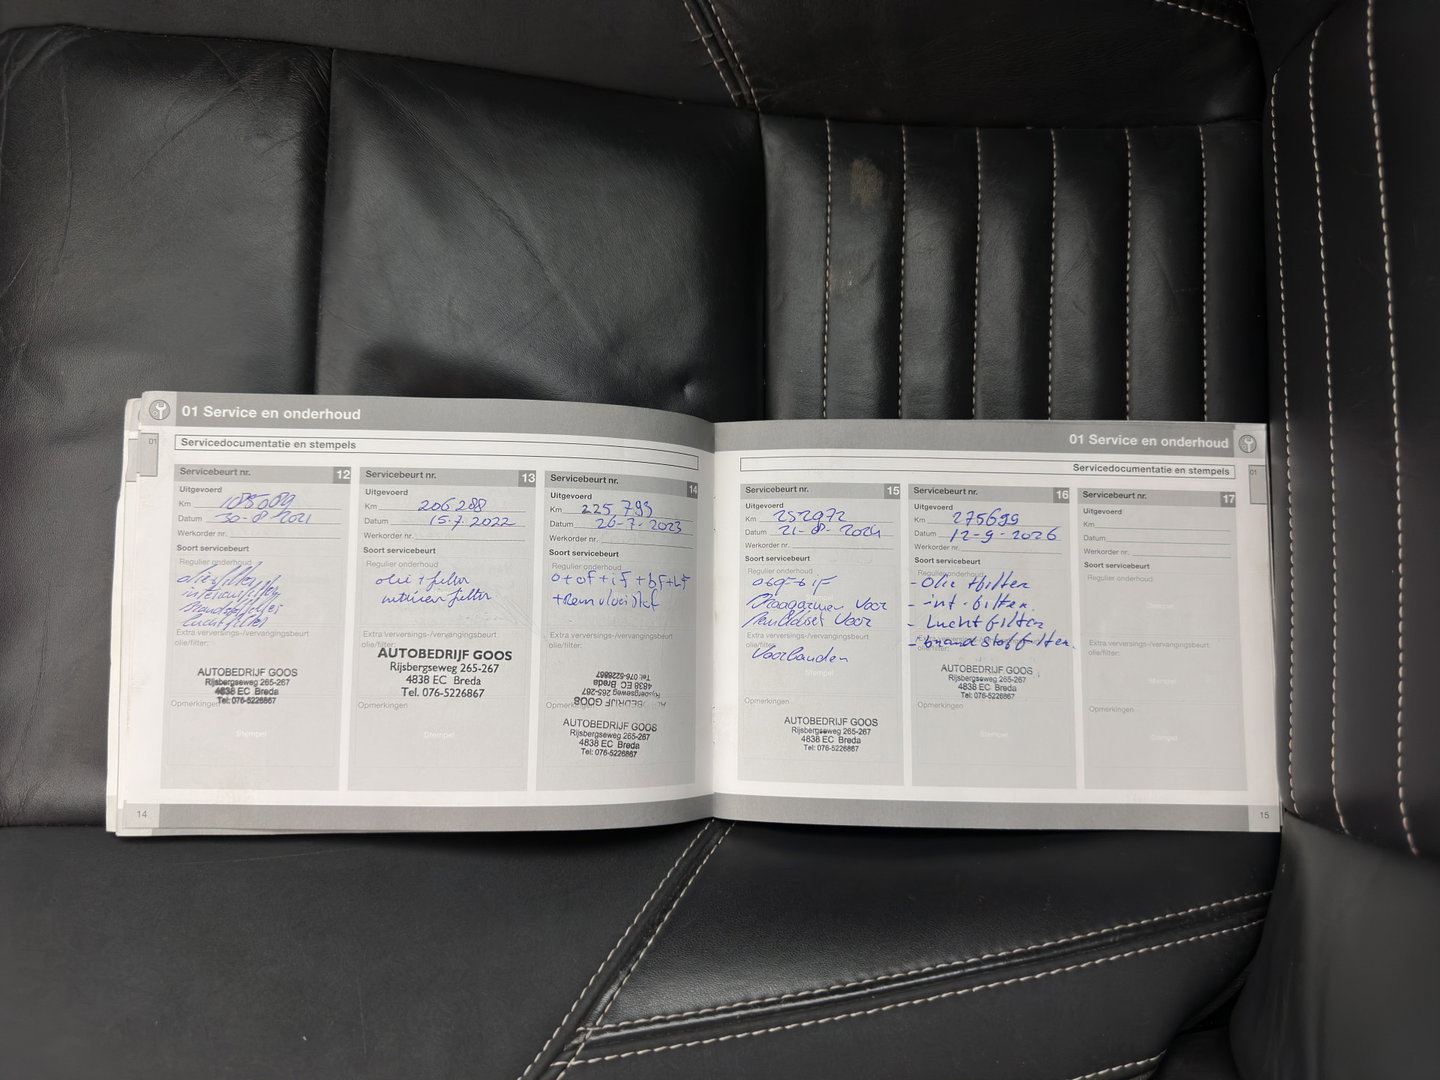 01 Service en onderhoud
01
Servicedocumentatie en stempels
Servicebeurt nr. 12
Uitgevoerd
Km 185089
Datum 30-8-2021
Werkorder nr.
Soort servicebeurt
Regulier onderhoud
oliefilter
interieurfilter
brandstoffilter
luchtfilter
Extra verversings-/vervangingsbeurt
olie/filter:
AUTOBEDRIJF GOOS
Rijsbergseweg 265-267
4838 EC Breda
Tel: 076-5226867
Opmerkingen
Stempel
Servicebeurt nr. 13
Uitgevoerd
Km 206288
Datum 15-7-2022
Werkorder nr.
Soort servicebeurt
Regulier onderhoud
olie + filter
interieur filter
Extra verversings-/vervangingsbeurt
olie/filter:
AUTOBEDRIJF GOOS
Rijsbergseweg 265-267
4838 EC Breda
Tel. 076-5226867
Opmerkingen
Stempel
Servicebeurt nr. 14
Uitgevoerd
Km 225,793
Datum 20-7-2023
Werkorder nr.
Soort servicebeurt
Regulier onderhoud
o+of+if+bf+lf
+Remvloeistof
Extra verversings-/vervangingsbeurt
olie/filter:
Tel: 076-5226867
4838 EC Breda
Rijsbergseweg 265-267
Opmerkingen
AUTOBEDRIJF GOOS
Rijsbergseweg 265-267
4838 EC Breda
Tel: 076-5226867
14
01 Service en onderhoud
01
Servicedocumentatie en stempels
Servicebeurt nr. 15
Uitgevoerd
Km 252972
Datum 21-8-2024
Werkorder nr.
Soort servicebeurt
Regulier onderhoud
Draagarmen Voor
Remblokset Voor
Extra verversings-/vervangingsbeurt
olie/filter:
Voorbanden
Stempel
Opmerkingen
AUTOBEDRIJF GOOS
Rijsbergseweg 265-267
4838 EC Breda
Tel: 076-5226867
Servicebeurt nr. 16
Uitgevoerd
Km 275699
Datum 12-9-2026
Werkorder nr.
Soort servicebeurt
Regulier onderhoud
- Olie + filter
- int. filter.
- Luchtfilter
- brandstoffilter.
olie/filter:
AUTOBEDRIJF GOOS
Rijsbergseweg 265-267
4838 EC Breda
Tel: 076-5226867
Opmerkingen
Stempel
Servicebeurt nr. 17
Uitgevoerd
Km
Datum
Werkorder nr.
Soort servicebeurt
Regulier onderhoud
Stempel
Extra verversings-/vervangingsbeurt
olie/filter:
Stempel
Opmerkingen
Stempel
15